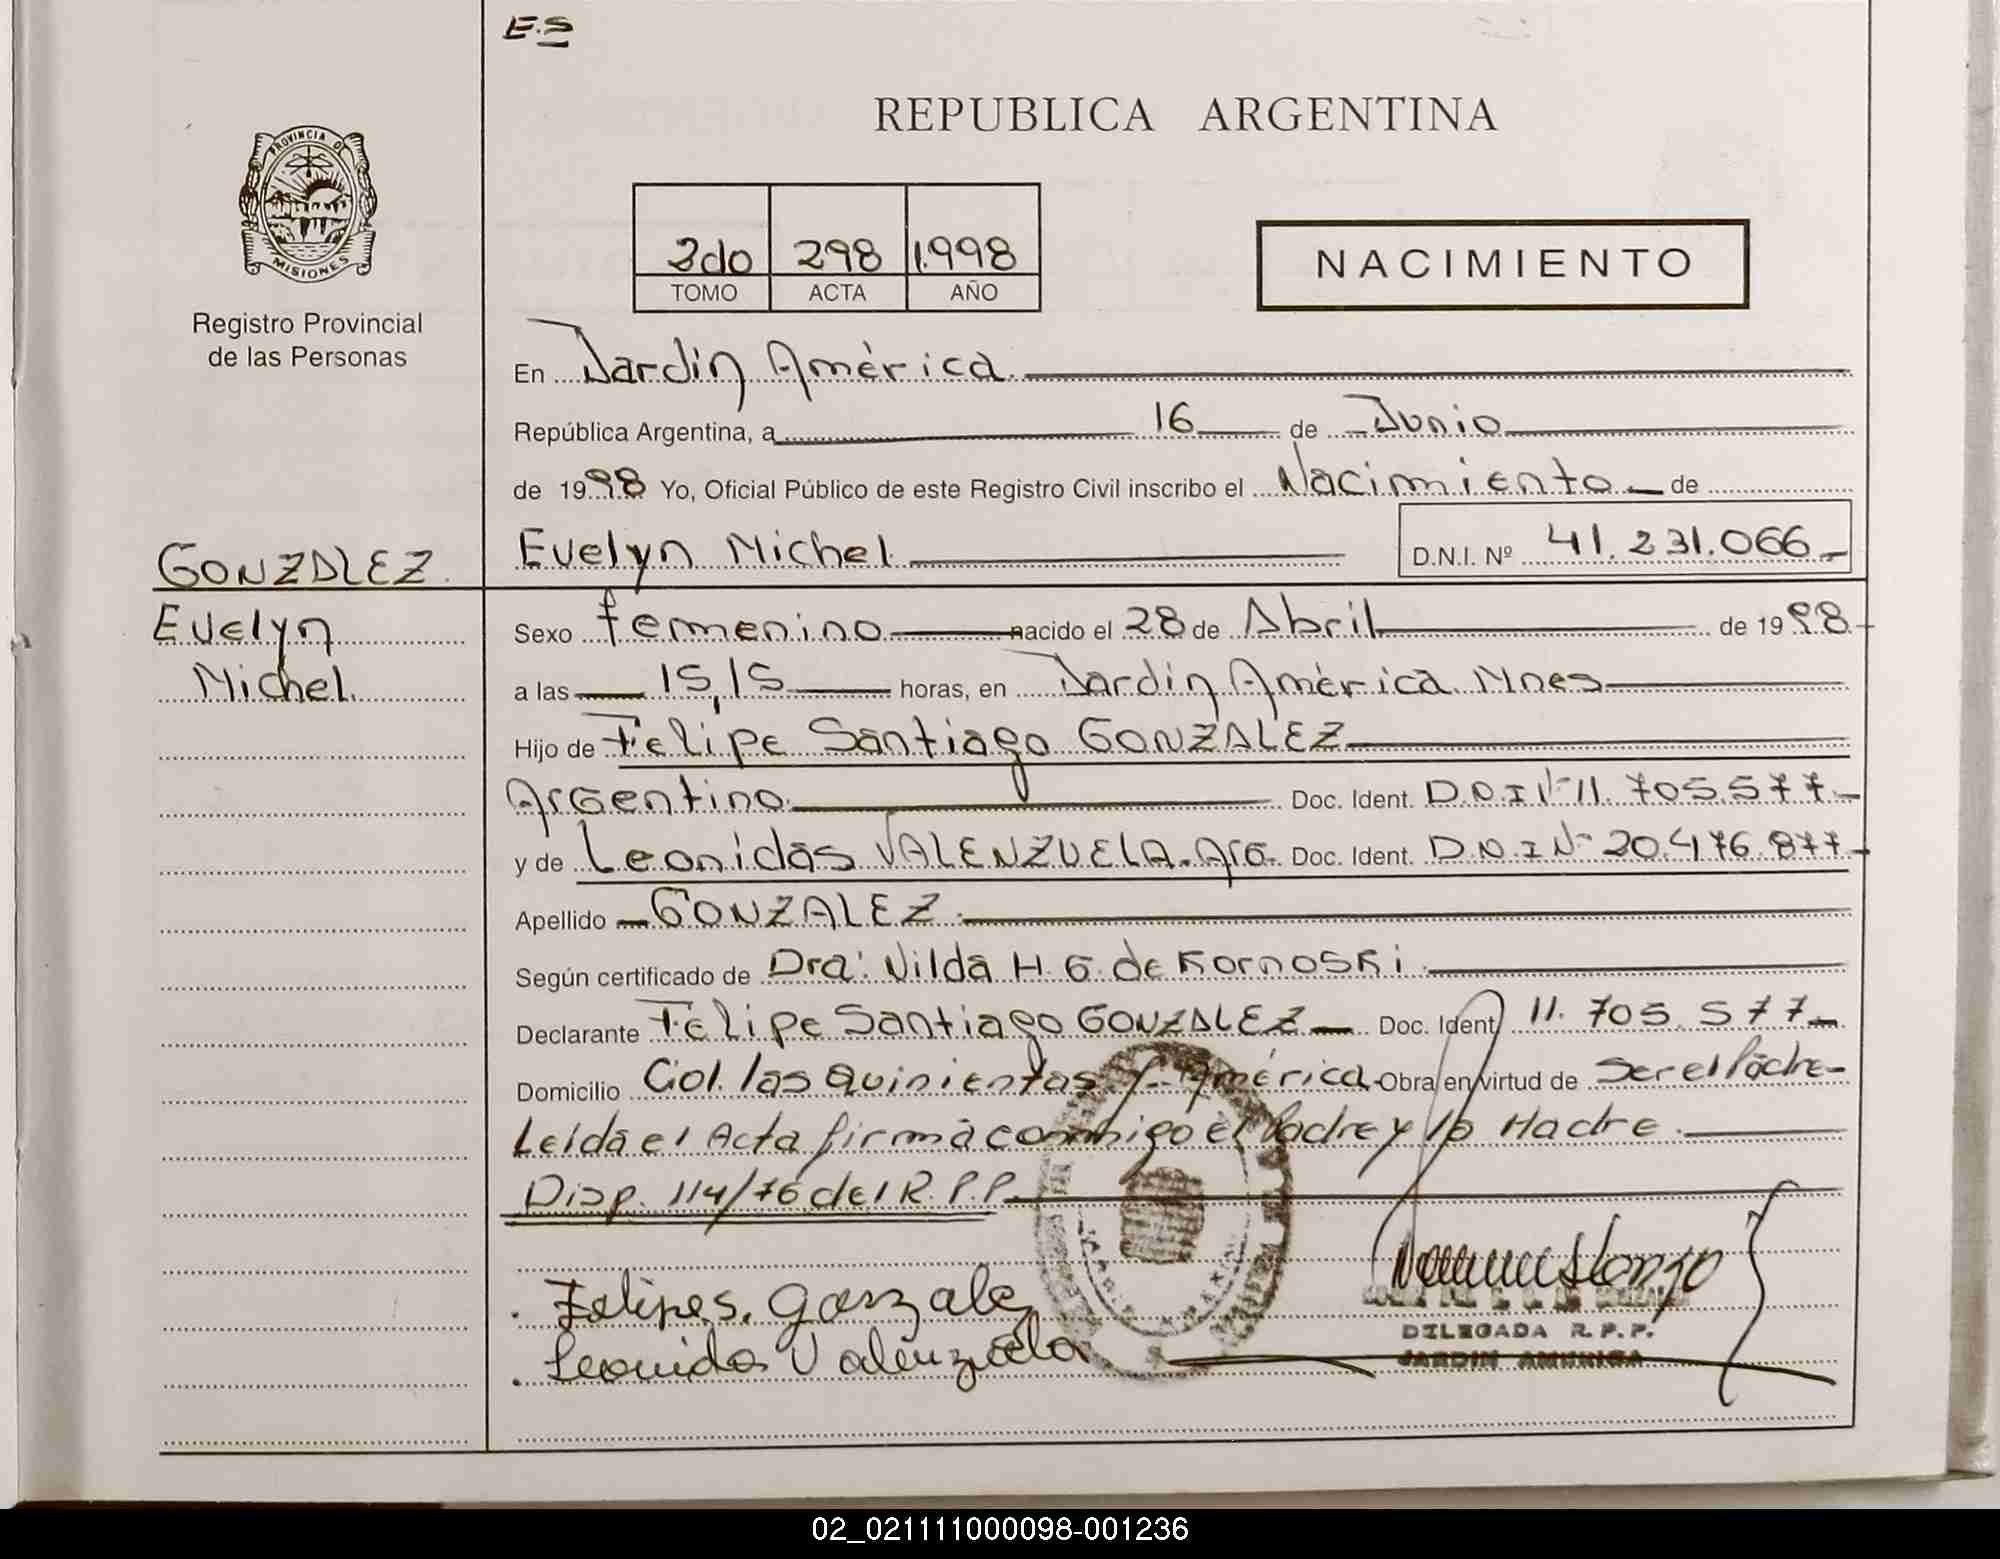 E.S
REPUBLICA ARGENTINA
PROVINCIA DE
MISIONES
Registro Provincial
de las Personas
2do 298 1.998
TOMO ACTA AÑO
NACIMIENTO
En Jardín América.
República Argentina, a 16 de Junio
de 1998 Yo, Oficial Público de este Registro Civil inscribo el Nacimiento de
Evelyn Michel D.N.I. Nº 41.231.066
GONZALEZ
Evelyn
Michel.
Sexo femenino nacido el 28 de Abril de 1998
a las 15,15 horas, en Jardín América Mnes
Hijo de Felipe Santiago GONZALEZ
Argentino Doc. Ident. D.N.I Nº 11.705.577
y de Leonidas VALENZUELA. Arg. Doc. Ident. D.N.I Nº 20.476.877
Apellido GONZALEZ
Según certificado de Dra: Nilda H. G. de Kornoski
Declarante Felipe Santiago GONZALEZ Doc. Ident 11.705.577
Domicilio Col. las Quinientas J. América Obra en virtud de Ser el Padre
Leída el Acta firma conmigo el Padre y la Madre.
Disp. 114/76 del R.P.P.
Felipe S. Gonzalez
Leonida Valenzuela
DELEGADA R.P.P.
JARDIN AMERICA
02_021111000098-001236